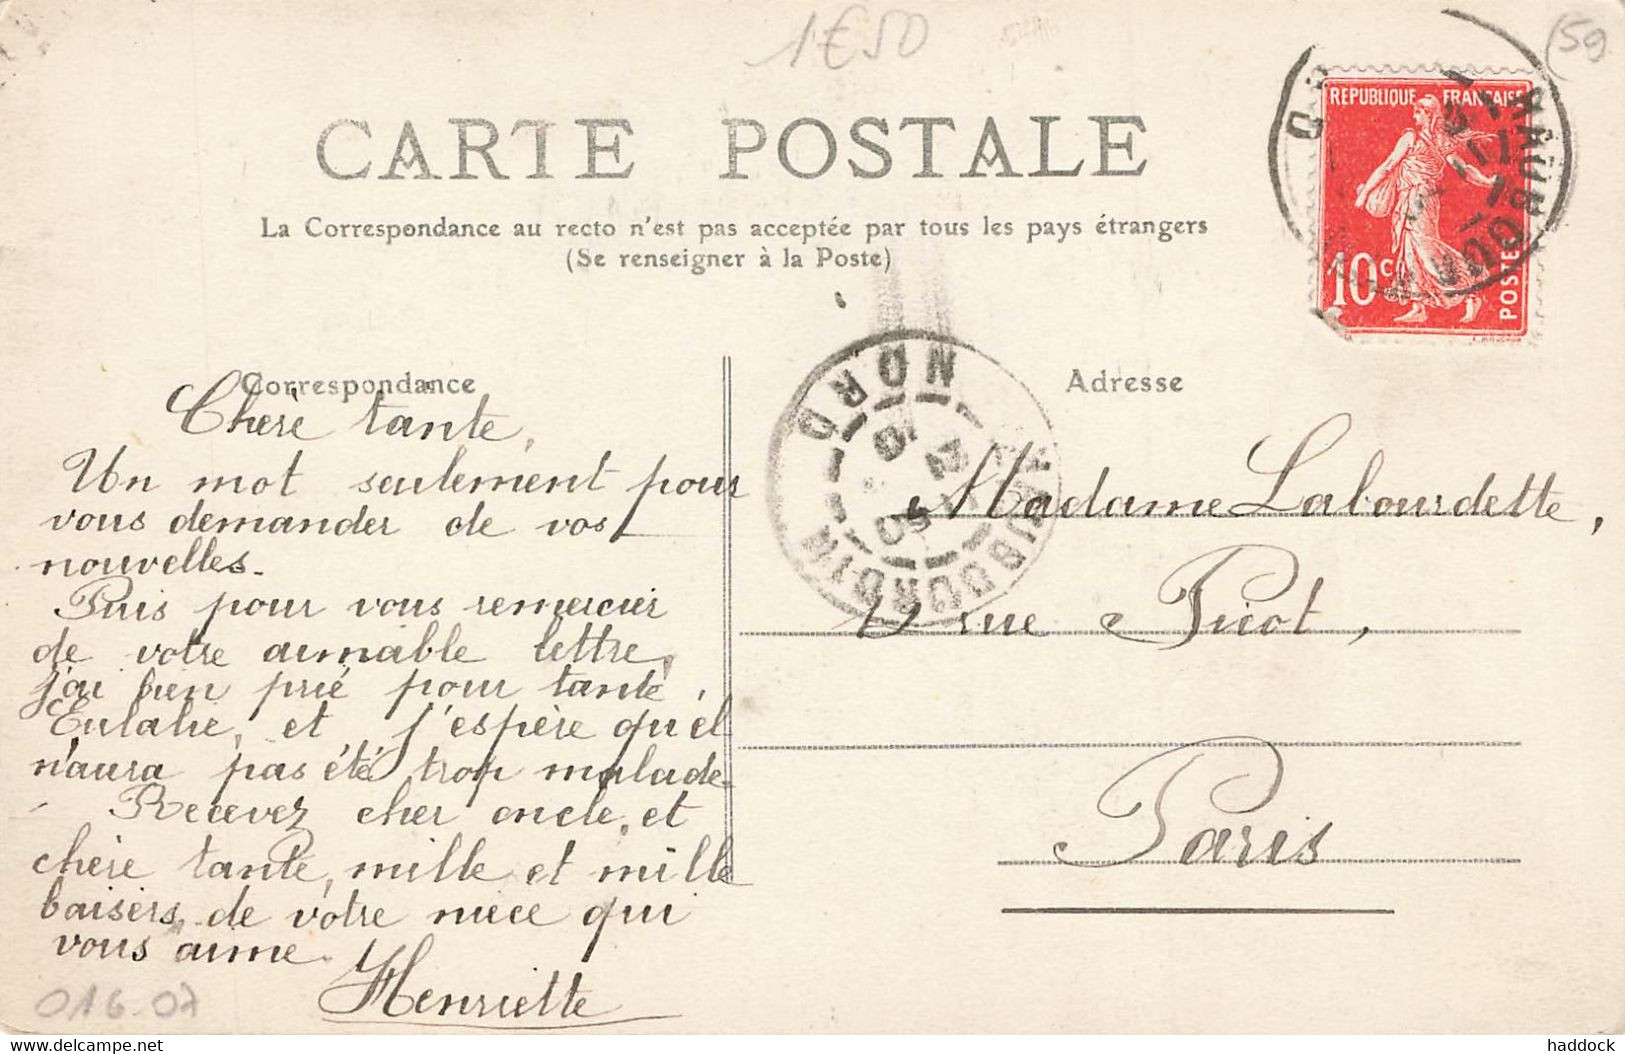 1€50
(59
CARTE POSTALE
La Correspondance au recto n'est pas acceptée par tous les pays étrangers
(Se renseigner à la Poste)
REPUBLIQUE FRANÇAISE
10 c
POSTES
E. MOUCHON
HAUBOURDIN
NORD
Correspondance
Chère tante,
Un mot seulement pour
vous demander de vos
nouvelles.
Puis pour vous remercier
de votre aimable lettre,
j'ai bien prié pour tante
Eulalie, et j'espère qu'el
n'aura pas été trop malade.
Recevez cher oncle, et
chère tante, mille et mille
baisers, de votre niece qui
vous aime.
Henriette
016.07
Adresse
Madame Labourdette,
rue Picot,
Paris
delcampe.net
haddock